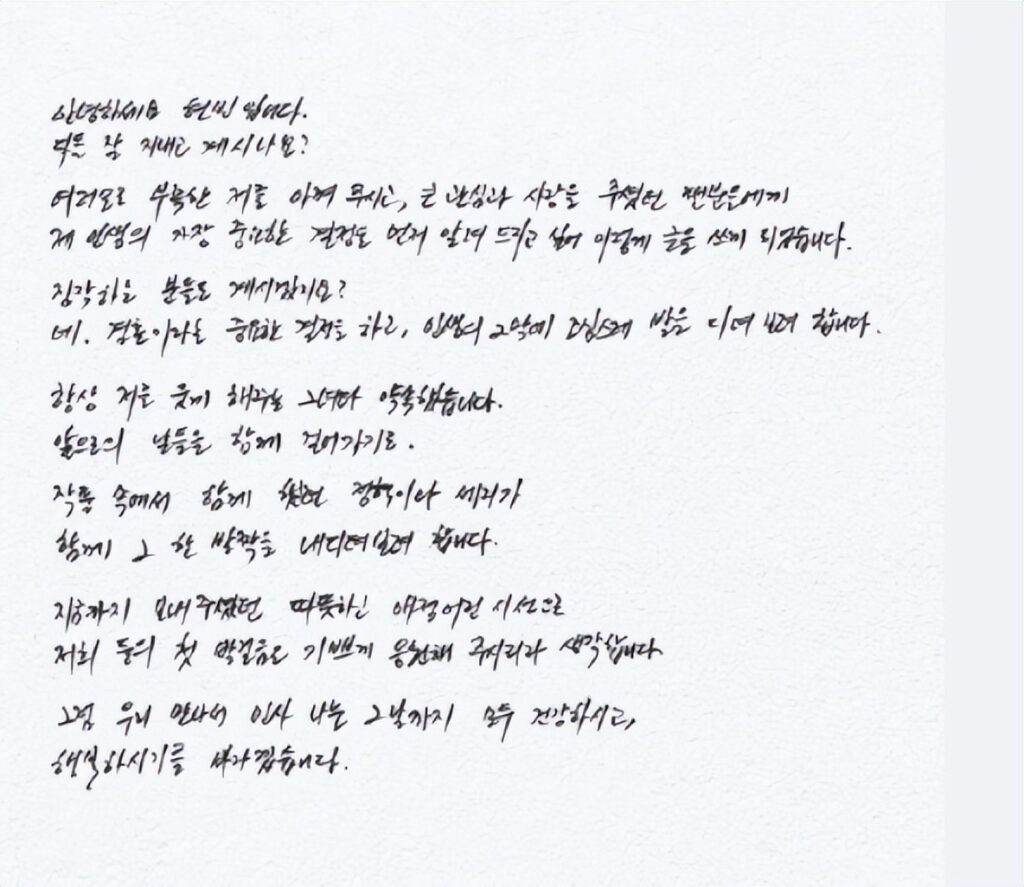 안녕하세요 현빈입니다.
다들 잘 지내고 계시나요?
여러모로 부족한 저를 아껴 주시고, 큰 관심과 사랑을 주셨던 팬분들에게
제 인생의 가장 중요한 결정을 먼저 알려 드리고 싶어 이렇게 글을 쓰게 되었습니다.
짐작하는 분들도 계시겠지요?
네. 결혼이라는 중요한 결정을 하고, 인생의 2막에 조심스레 발을 디뎌 보려 합니다.
항상 저를 웃게 해주는 그녀와 약속했습니다.
앞으로의 날들을 함께 걸어가기로.
작품 속에서 함께 했던 정혁이와 세리가
함께 그 한 발짝을 내디뎌보려 합니다.
지금까지 보내주셨던 따뜻하고 애정어린 시선으로
저희 둘의 첫 발걸음도 기쁘게 응원해 주시리라 생각합니다
그럼 우리 만나서 인사 나눌 그날까지 모두 건강하시고,
행복하시기를 바라겠습니다.